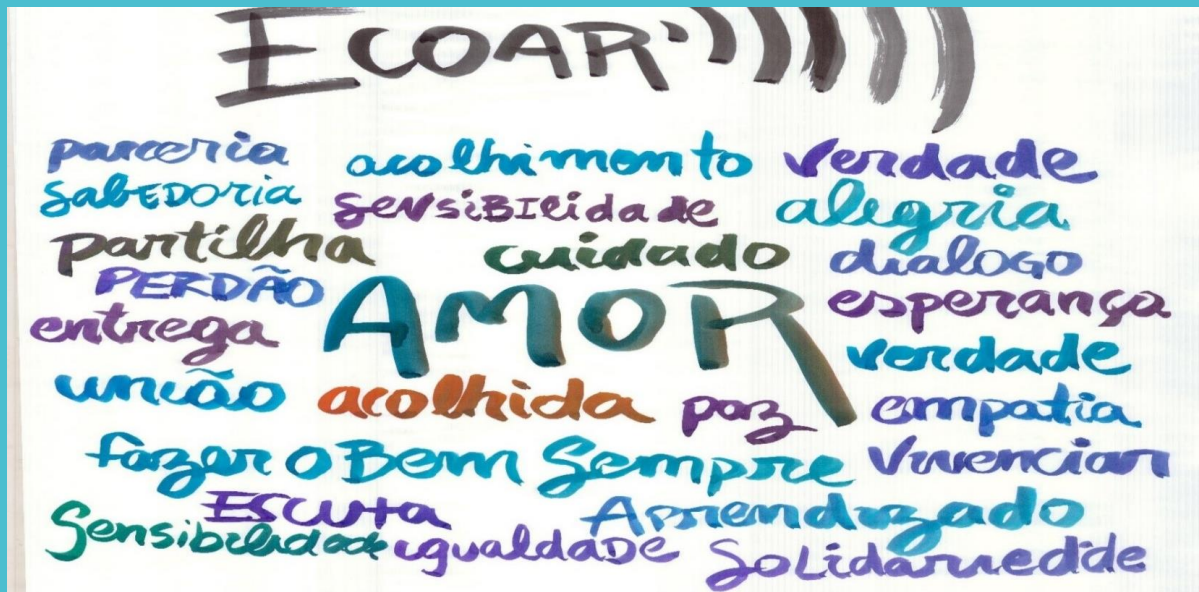 ECOAR
parceria acolhimento verdade
SabEDOria SENSiBILidade alegria
partilha cuidado dialOGO
PERDÃO AMOR esperança
entrega verdade
união acolhida paz empatia
fazer o Bem Sempre Vivenciar
ESCUTA Aprendizado
Sensibilidade igualdaDE SOLidariedade